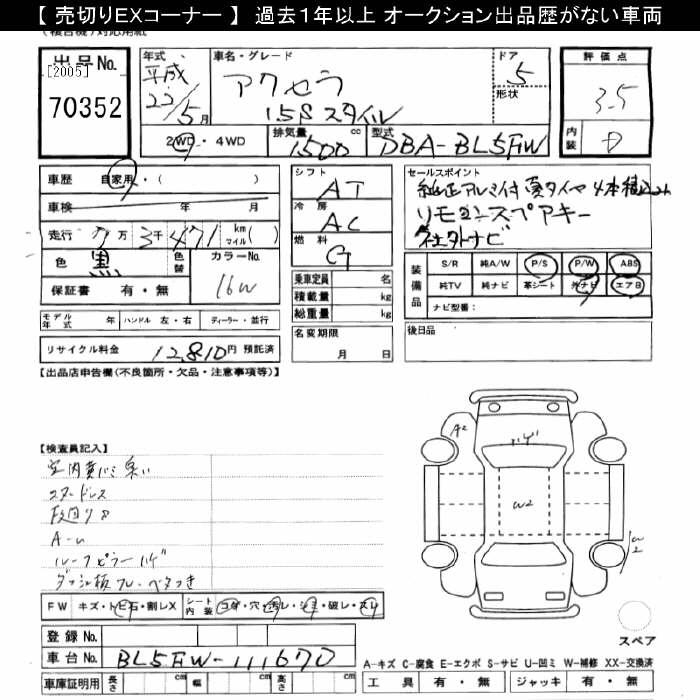 【 売切りEXコーナー 】 過去1年以上 オークション出品歴がない車両
出品No.
[2005]
70352
年式
平成
22/5月
車名・グレード
アクセラ
1.5S スタイル
ドア
5
形状
評価点
3.5
内装
D
2WD・4WD
排気量
1500
cc
型式
DBA-BL5FW
車歴
自家用・( )
車検
年 月
走行
7万 3千 471 km マイル( )
色
黒
色替
カラーNo.
16W
保証書 有・無
シフト
AT
冷房
AC
燃料
G
乗車定員 名
積載量 kg
総重量 kg
セールスポイント
純正アルミ付 夏タイヤ4本積込み
リモコンスペアキー
社外ナビ
装備
S/R 純A/W P/S P/W ABS
純TV 純ナビ 革シート 外ナビ エアB
ナビ型番:
モデル年式 年 ハンドル 左・右 ディーラー・並行
名変期限
月 日
後日品
リサイクル料金 12,810円 預託済
【出品店申告欄(不良箇所・欠品・注意事項等)】
【検査員記入】
スタッドレス
A-U
ルーフピラーハゲ
ダッシュ板フレ・ベタつき
A2
ハゲ
W2
W2
FW キズ・トビ石・割レX
シート内装 コゲ・穴・汚レ・シミ・破レ・スレ
登録No.
車台No. BL5FW-111670
車庫証明用 長さ cm 幅 cm 高さ cm
スペア
A-キズ C-腐食 E-エクボ S-サビ U-凹ミ W-補修 XX-交換済
工具 有・無 ジャッキ 有・無